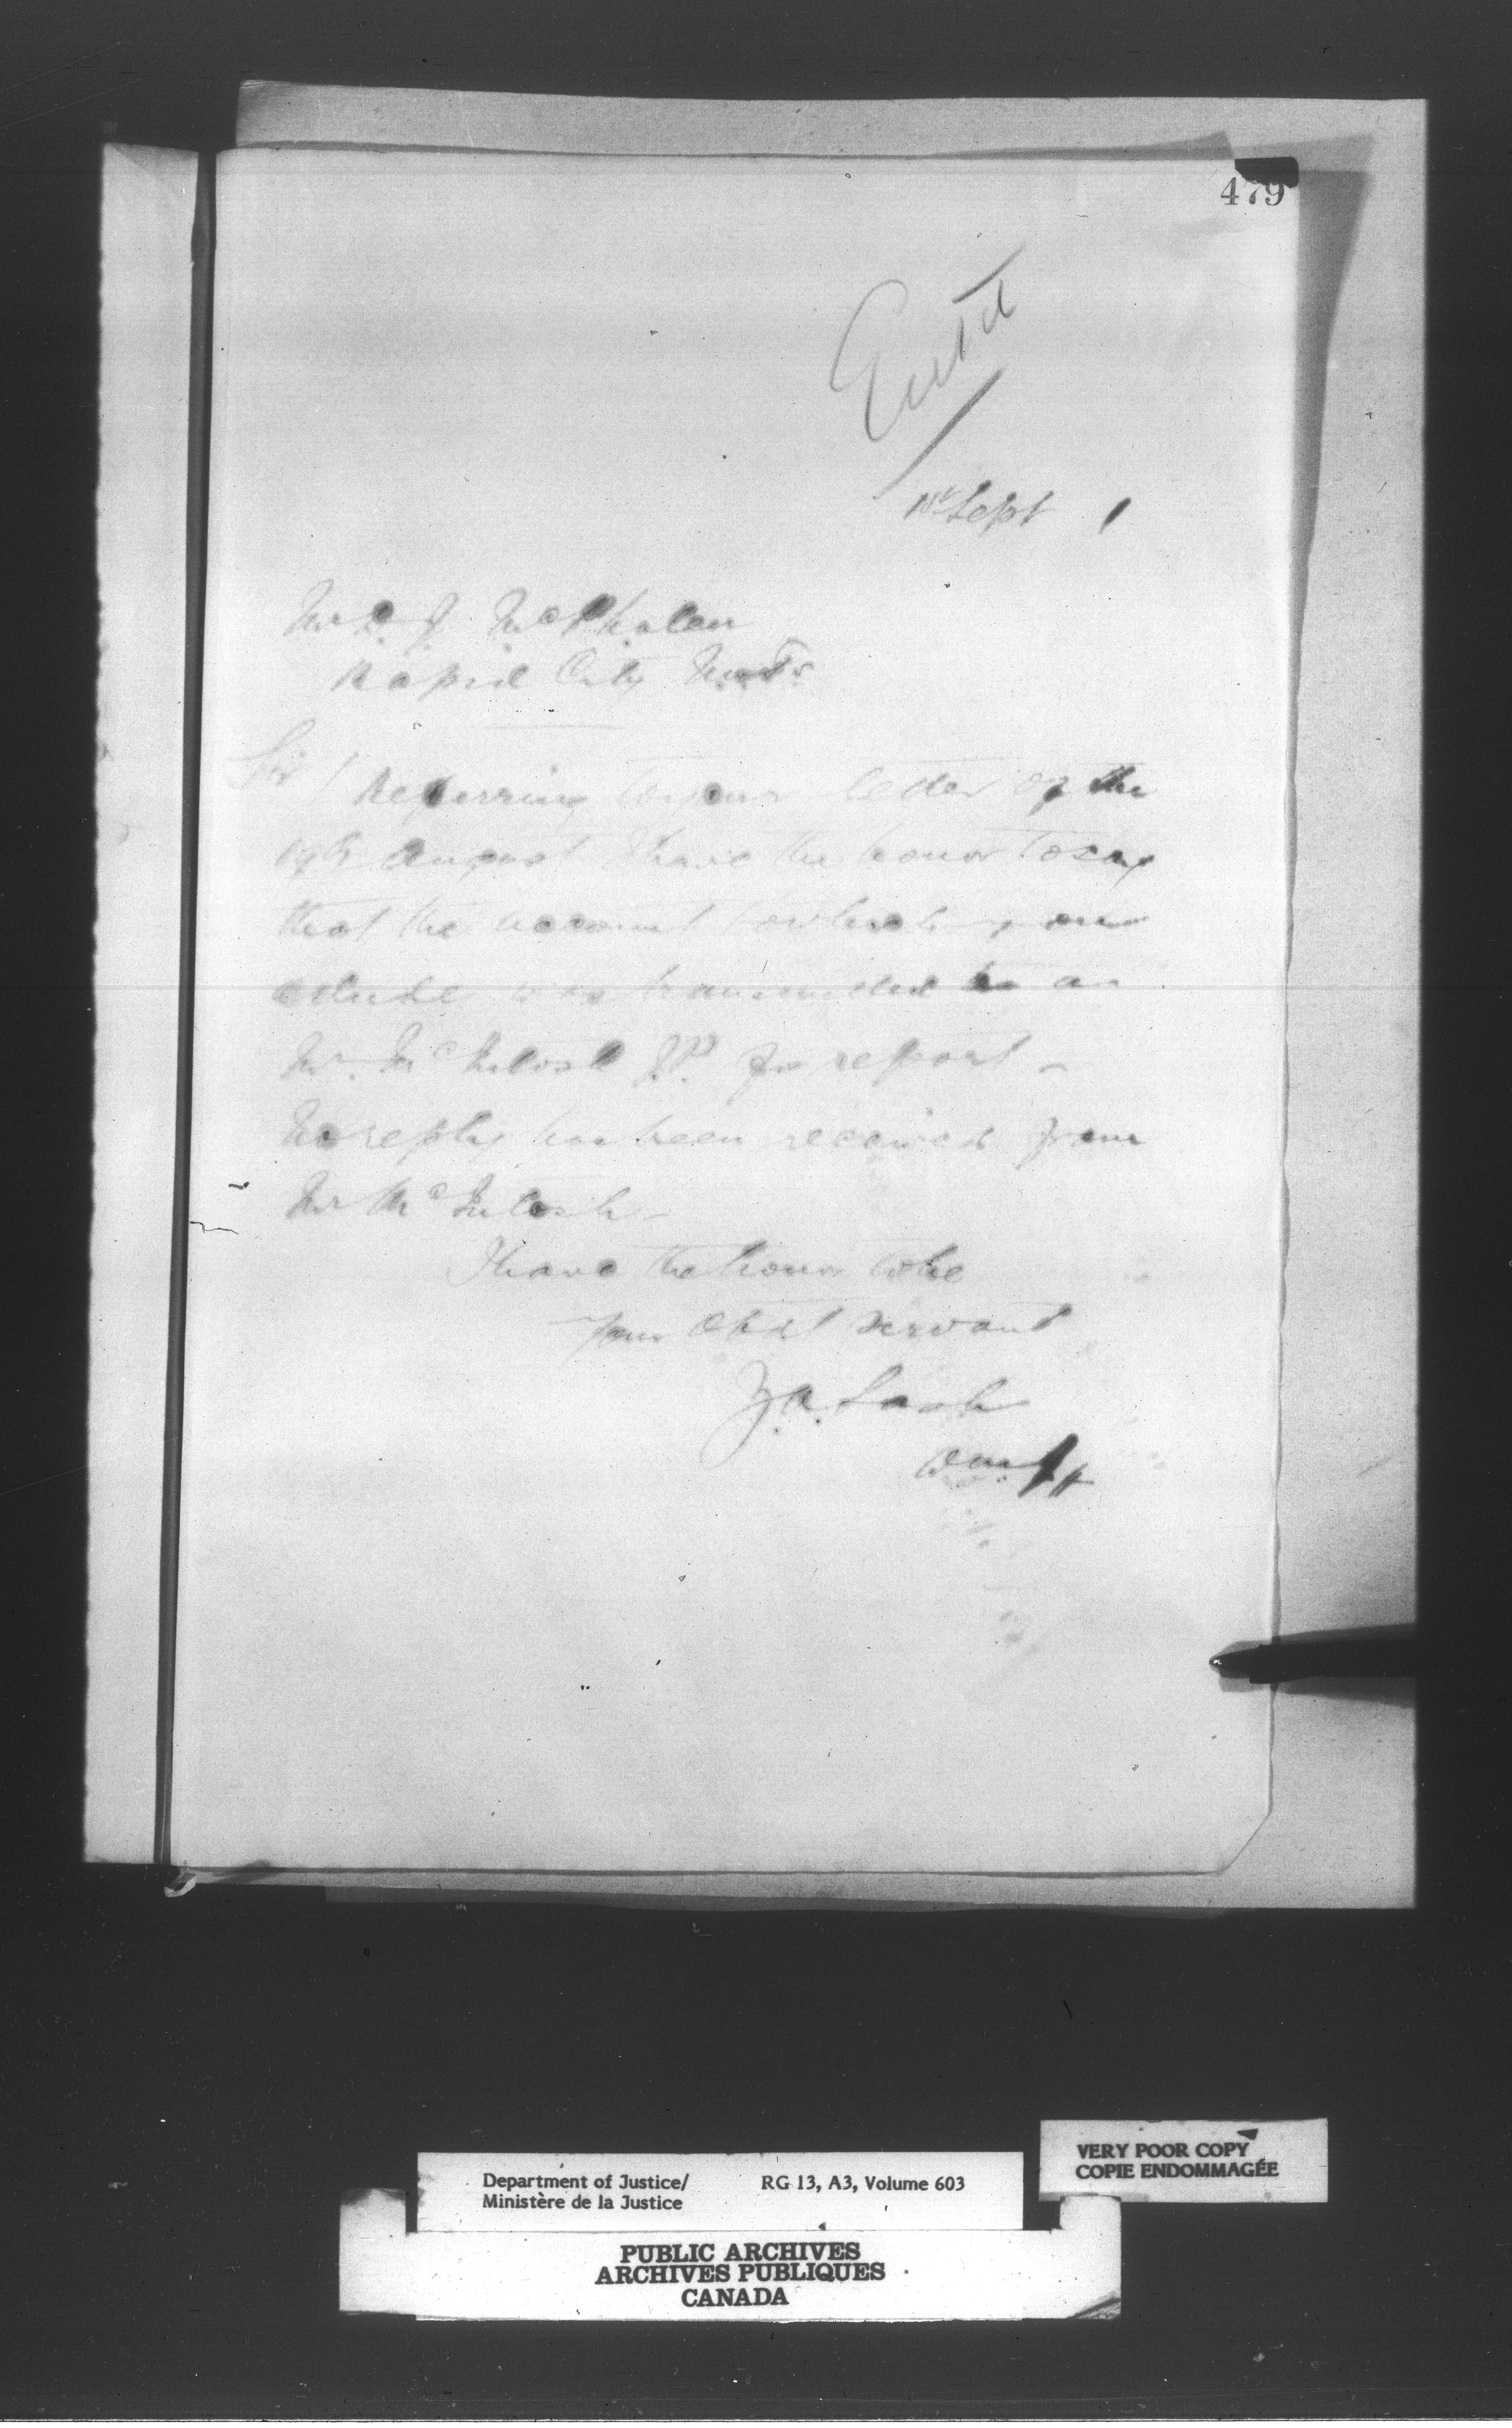 479
Entd
1st Sept 1
Mr. McPhalen
Rapid City N.W.T.
Sir / Referring to your letter of the
19th August I have the honor to say
that the account to which you
allude was transmitted to a
Mr. McIntosh J.P. for report -
No reply has been received from
Mr McIntosh -
I have the honor to be
Your Obdt servant
Z.A. Lash
D.M.J.
Department of Justice/ RG 13, A3, Volume 603
Ministère de la Justice
VERY POOR COPY
COPIE ENDOMMAGÉE
PUBLIC ARCHIVES
ARCHIVES PUBLIQUES
CANADA